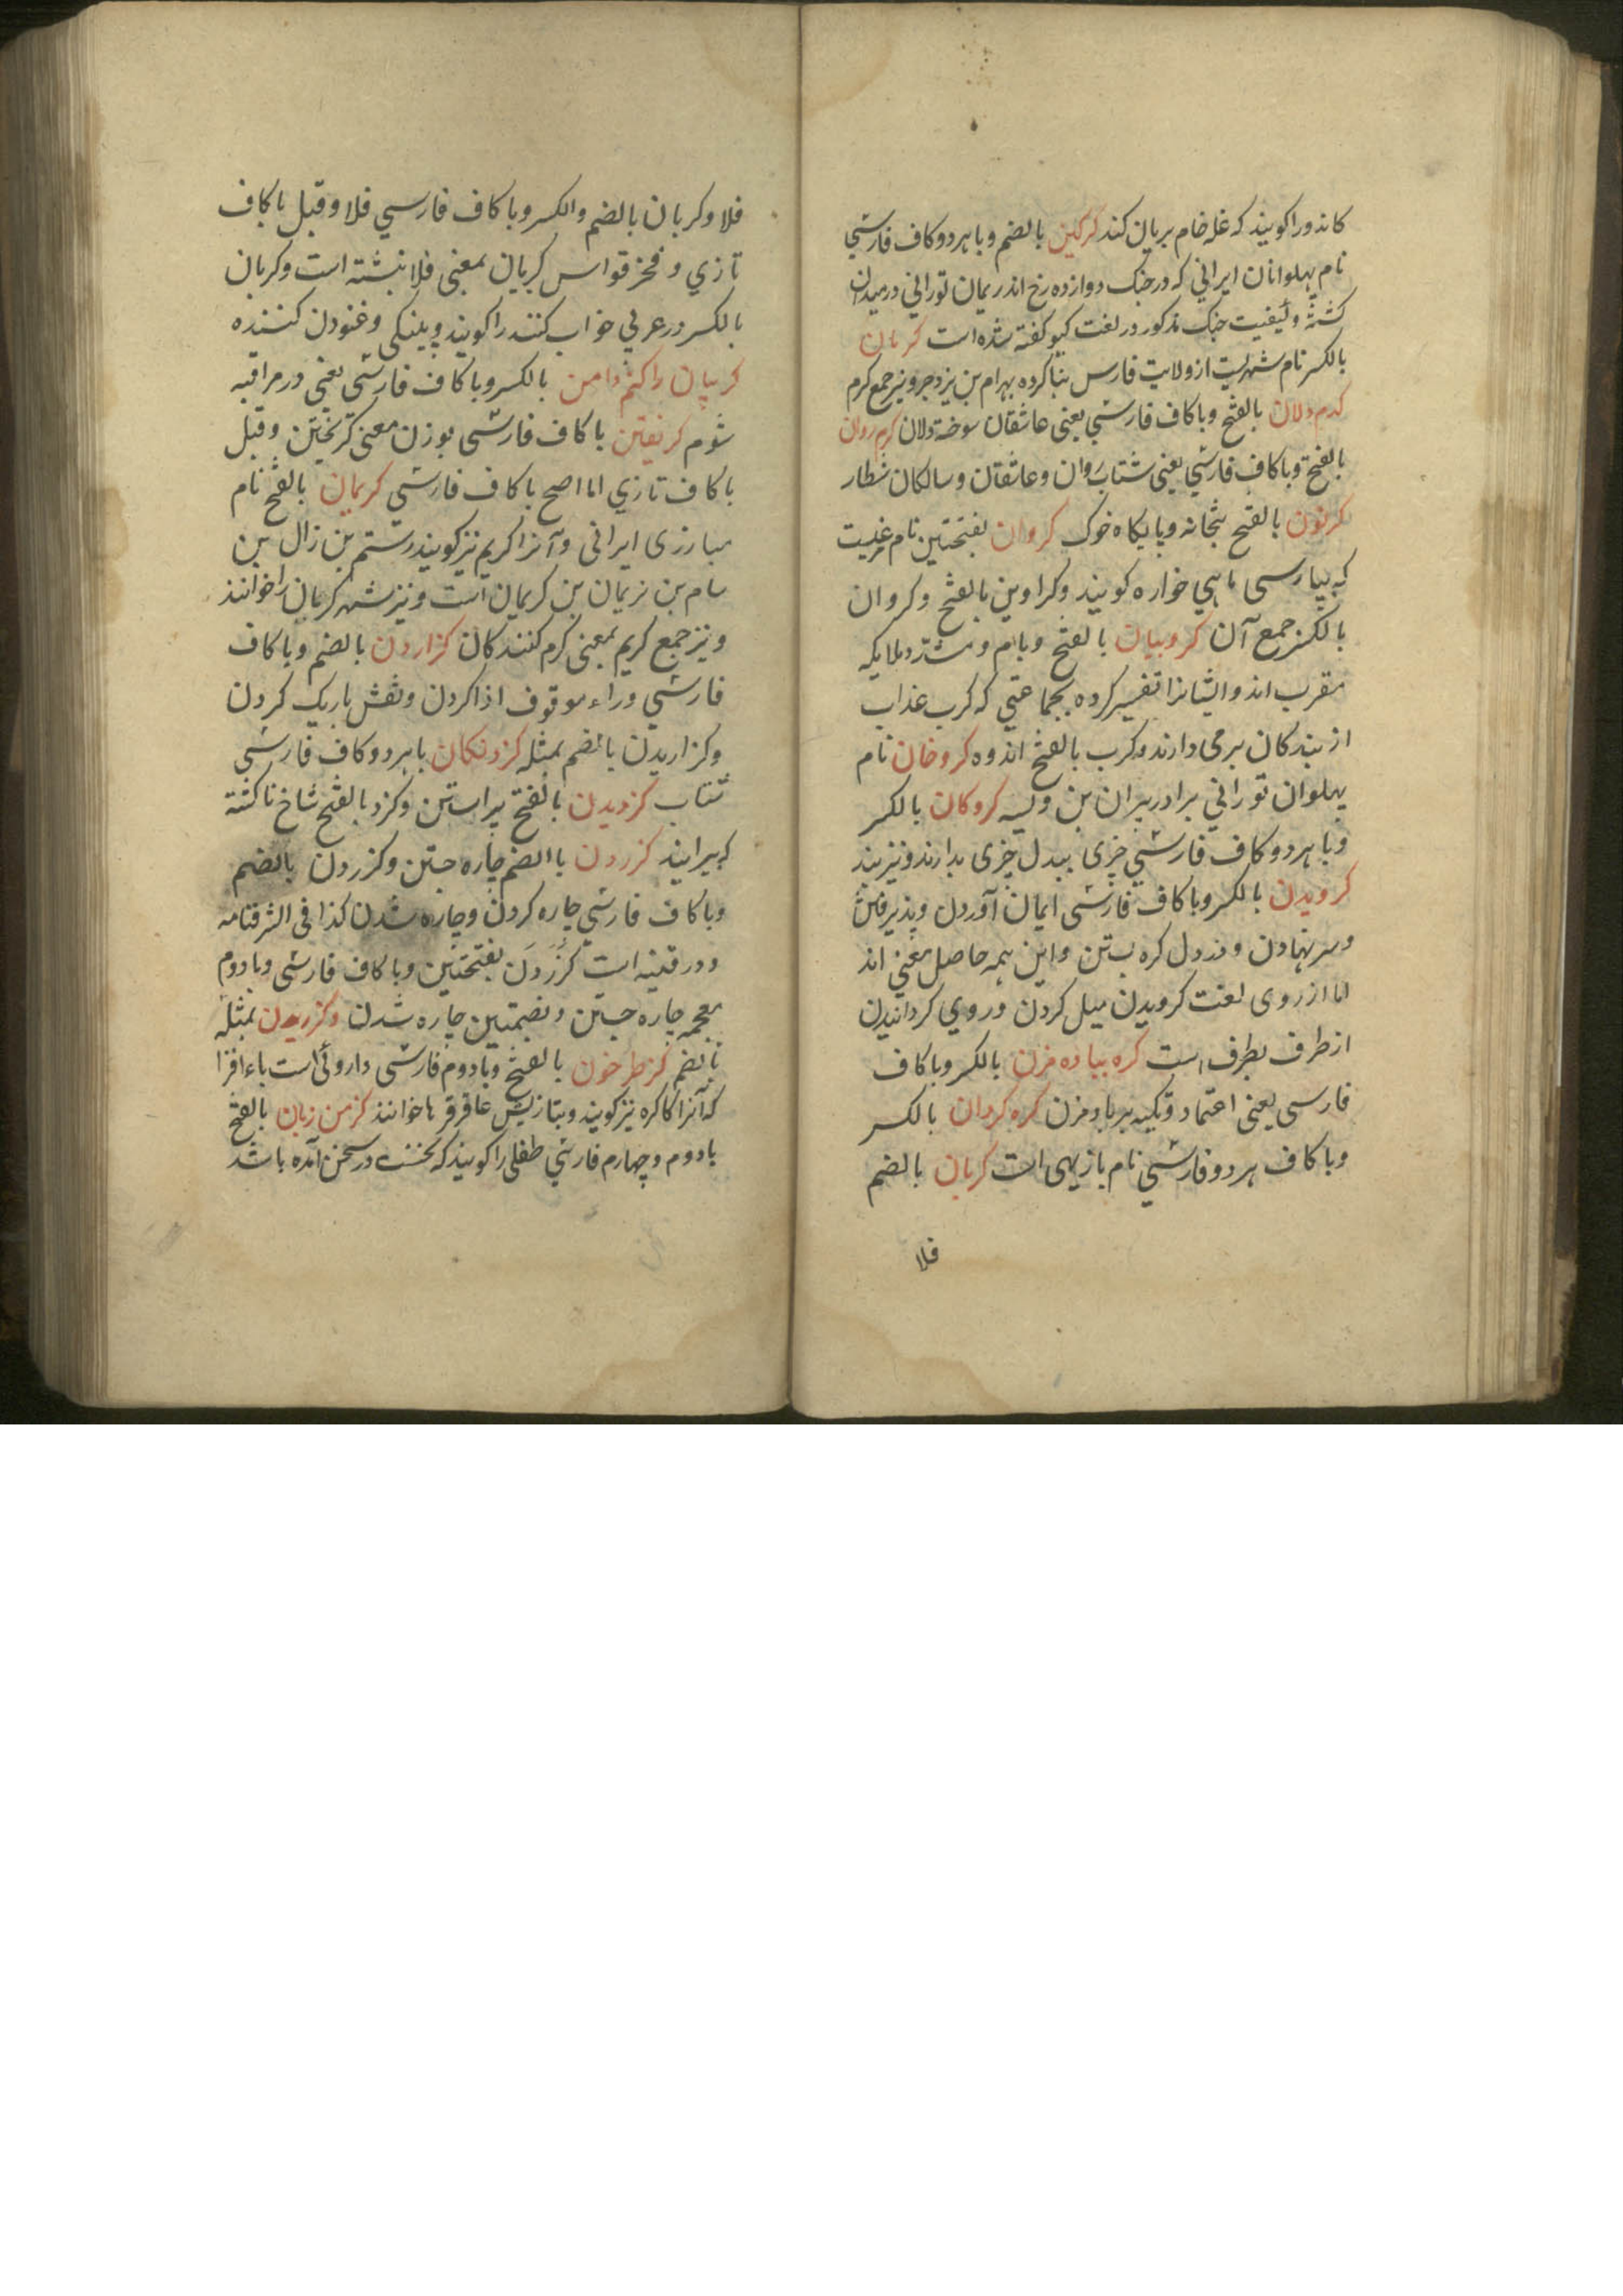 کاندو را کویند که غله خام بریان کند کرکین بالضم و با هر دو کاف فارسی
نام پهلوانان ایرانی که در جنک دوازده رخ اندریمان تورانی در میدان
کشته و کیفیت جنک مذکور در لغت کیو کفته شده است کرمان
بالکسر نام شهریست از ولایت فارس بنا کرده بهرام بن یزدجرد و نیز جمع کرم
کرم دلان بالفتح و با کاف فارسی یعنی عاشقان سوخته دلان کرم روان
بالفتح و با کاف فارسی یعنی شتاب روان و عاشقان و سالکان شطار
کرنون بالفتح بتخانه و پایکاه خوک کروان بفتحتین نام مرغیست
که بپارسی ماهی خواره کویند و کراوین بالفتح و کروان
بالکسر جمع آن کروبیان بالفتح و بام و مشدد ملایکه
مقرب اند و ایشانرا تفسیر کرده بجماعتی که کرب عذاب
از بندکان برمی دارند و کرب بالفتح اندوه کروخان نام
پهلوان تورانی برادر پیران بن ویسه کروکان بالکسر
و با هر دو کاف فارسی چیزی ببدل چیزی بدارند و نیز بند
کرویدن بالکسر و با کاف فارسی ایمان آوردن و پذیرفتن
و سر نهادن و در دل کره بستن و این همه حاصل معنی اند
اما از روی لغت کرویدن میل کردن و روی کردانیدن
از طرف بطرف است کره بباده مزن بالکسر و با کاف
فارسی یعنی اعتماد و تکیه بر باد مزن کره کردان بالکسر
و با کاف هر دو فارسی نام بازیهی است کریان بالضم
فلا
فلا و کریان بالضم و الکسر و با کاف فارسی فلا و قیل با کاف
تازی و فخر قواس کریان بمعنی فلا نبشته است و کریان
بالکسر در عربی خواب کننده را کویند و پلنکی و غنودن کننده
کریبان را کنم دامن بالکسر و با کاف فارسی یعنی در مراقبه
شوم کریفتن با کاف فارسی بوزن معنی کریختن و قیل
با کاف تازی اما اصح با کاف فارسی کریمان بالفتح نام
مبارزی ایرانی و آنرا کریم نیز کویند رستم بن زال بن
سام بن نریمان بن کریمان است و نیز شهر کریان را خوانند
و نیز جمع کریم بمعنی کرم کنندکان کزاردن بالضم و با کاف
فارسی و راء موقوف ادا کردن و نقش باریک کردن
و کزاریدن بالضم بمثله کزدنکان با هر دو کاف فارسی
شتاب کزدیدن بالفتح پیراستن و کزد بالفتح شاخ ناکشته
که پیرایند کزردن بالضم چاره جستن و کزردن بالضم
و با کاف فارسی چاره کردن و چاره شدن کذا فی الشرفنامه
و در قنیه است کزردن بفتحتین و با کاف فارسی و با دوم
معجمه چاره جستن و بضمتین چاره شدن و کزریدن بمثله
بالضم کزطرخون بالفتح و با دوم فارسی داروئی است باءافزا
که آنرا کاکره نیز کویند و بتازیش عاقرقرها خوانند کزمن زبان بالفتح
با دوم و چهارم فارسی طفلی را کویند که نخست در سخن آمده باشد